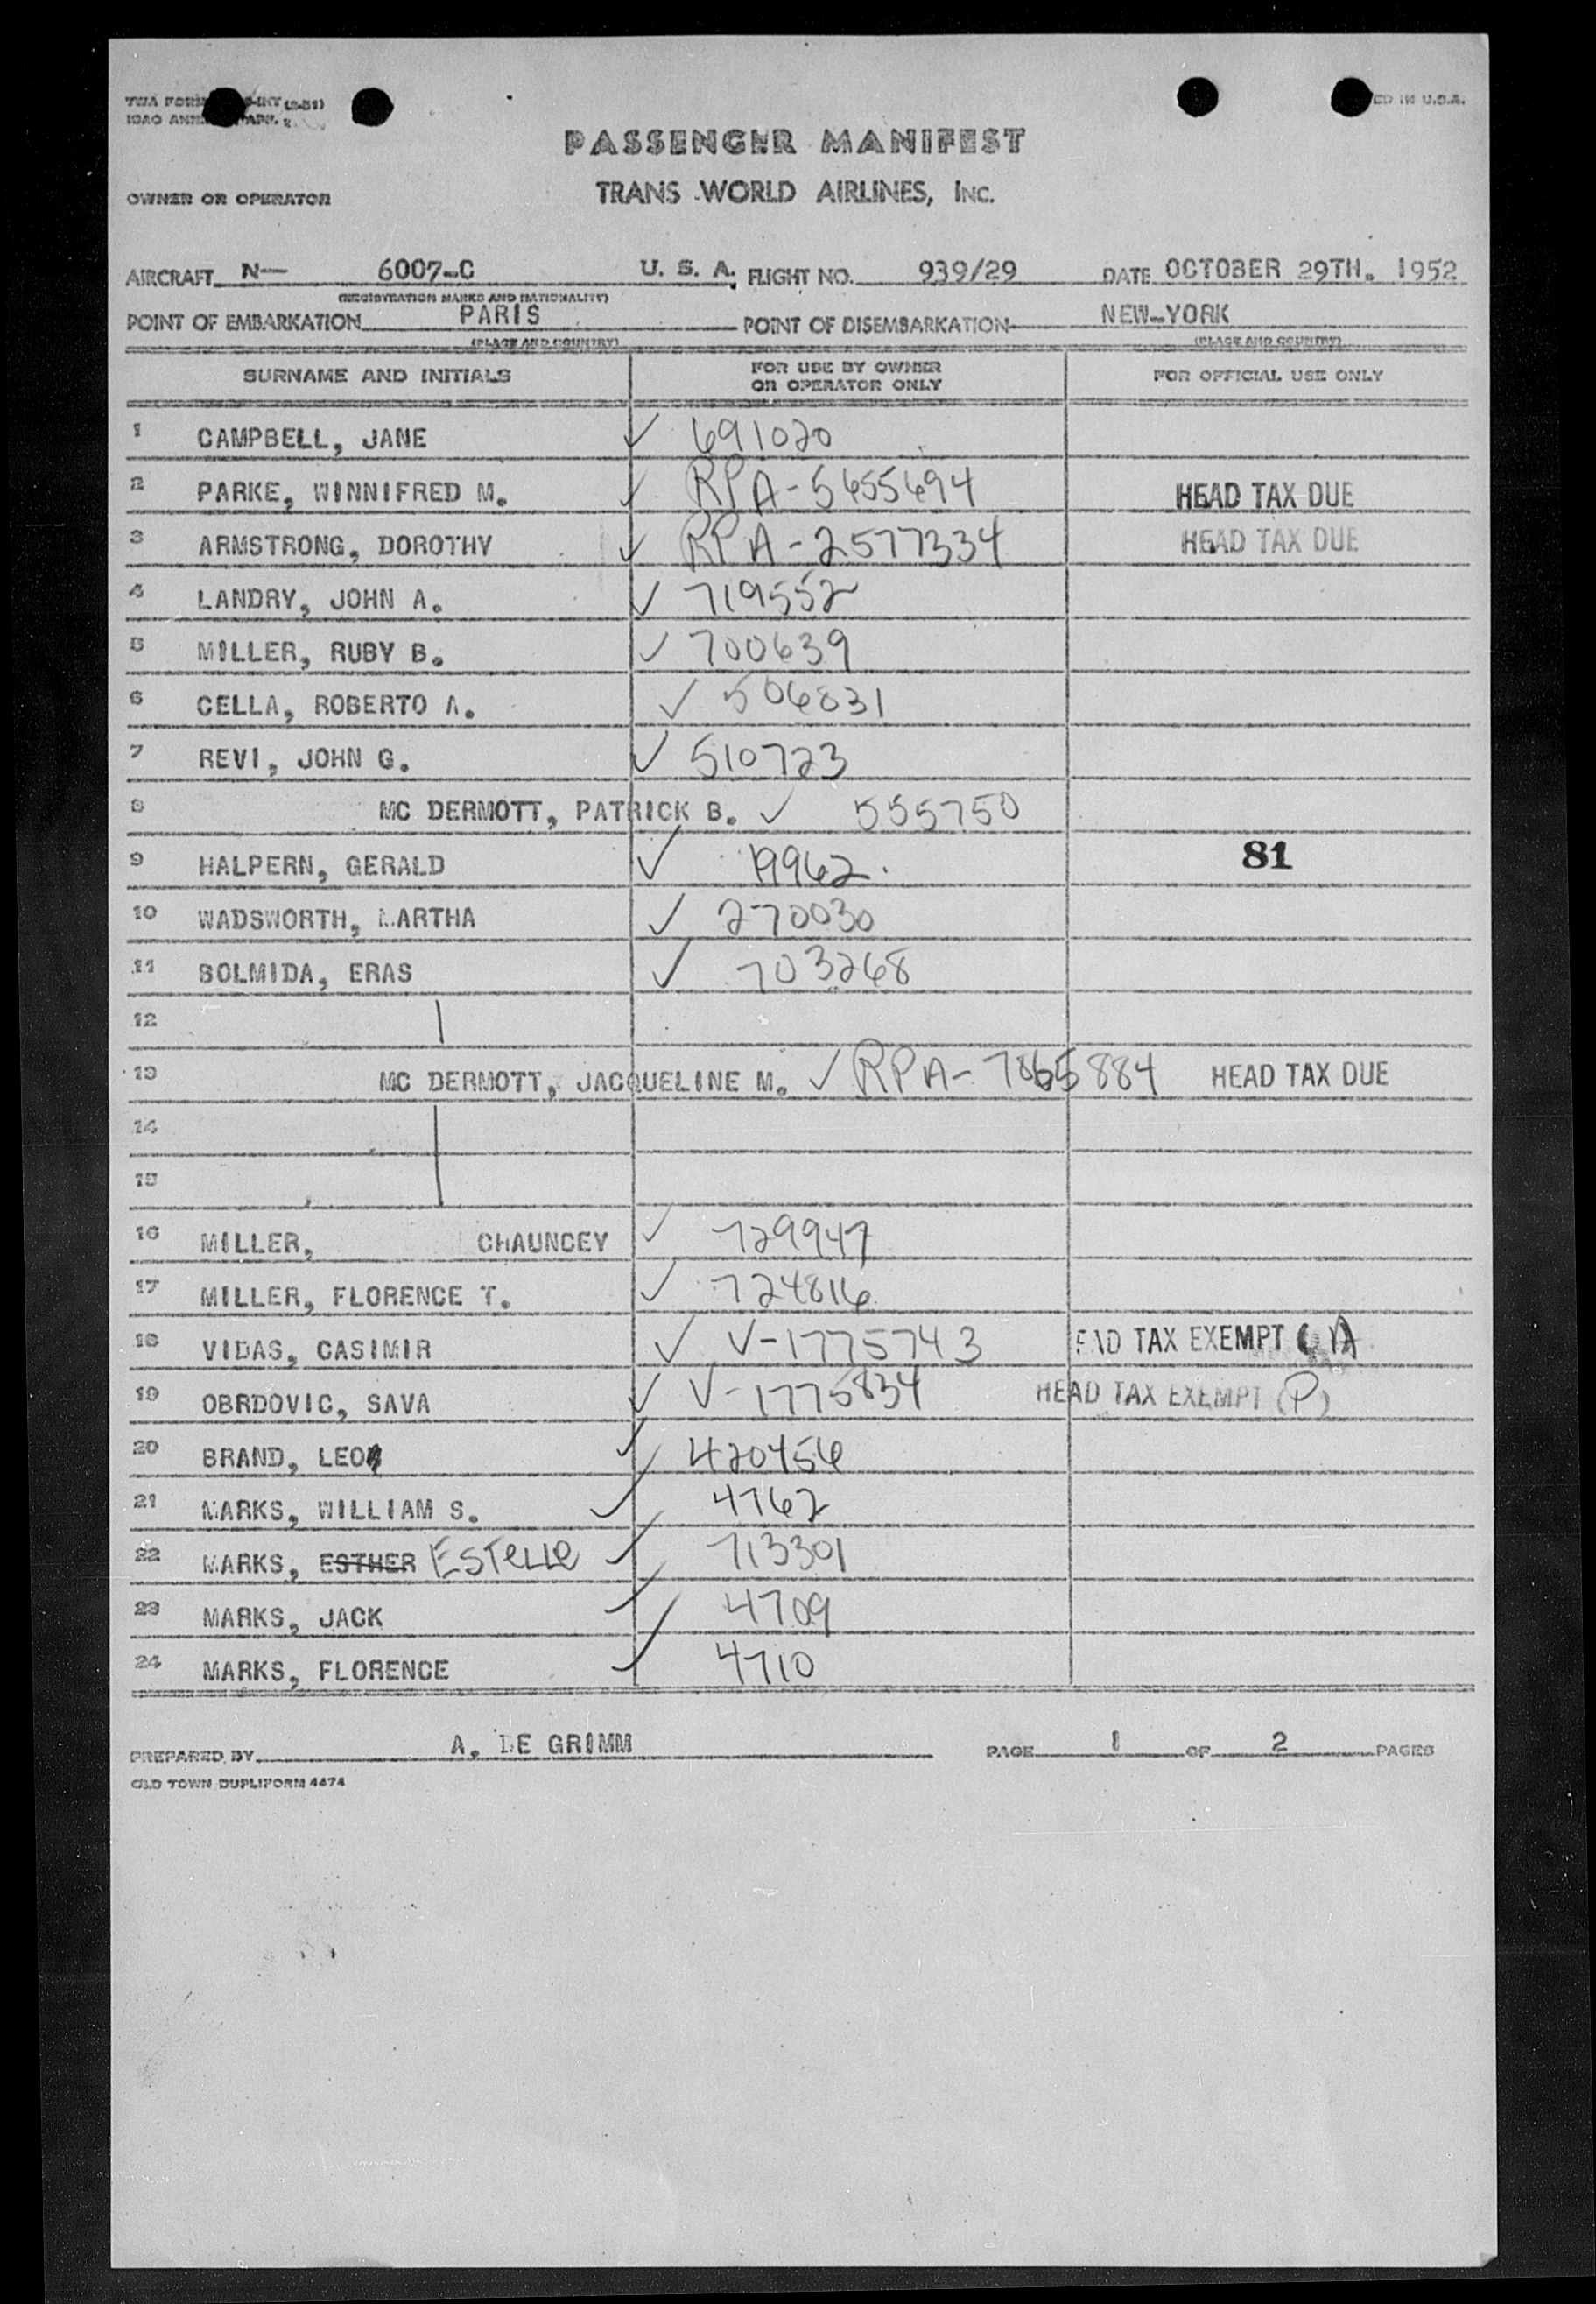 TWA FORM -INT (2-51)
ICAO ANNEX
ED IN U.S.A.
PASSENGER MANIFEST
OWNER OR OPERATOR TRANS WORLD AIRLINES, INC.
AIRCRAFT N- 6007-C U. S. A. FLIGHT NO. 939/29 DATE OCTOBER 29TH. 1952
(REGISTRATION MARKS AND NATIONALITY)
POINT OF EMBARKATION PARIS POINT OF DISEMBARKATION NEW-YORK
(PLACE AND COUNTRY) (PLACE AND COUNTRY)
SURNAME AND INITIALS FOR USE BY OWNER OR OPERATOR ONLY FOR OFFICIAL USE ONLY
1 CAMPBELL, JANE ✓ 691020
2 PARKE, WINNIFRED M. ✓ RPA-5655694 HEAD TAX DUE
3 ARMSTRONG, DOROTHY ✓ RPA-2577334 HEAD TAX DUE
4 LANDRY, JOHN A. ✓ 719552
5 MILLER, RUBY B. ✓ 700639
6 CELLA, ROBERTO A. ✓ 506831
7 REVI, JOHN G. ✓ 510723
8 MC DERMOTT, PATRICK B. ✓ 555750
9 HALPERN, GERALD ✓ 19962. 81
10 WADSWORTH, MARTHA ✓ 270030
11 BOLMIDA, ERAS ✓ 703268
12
13 MC DERMOTT, JACQUELINE M. ✓ RPA-7865884 HEAD TAX DUE
14
15
16 MILLER, CHAUNCEY ✓ 729947
17 MILLER, FLORENCE T. ✓ 724816
18 VIDAS, CASIMIR ✓ V-1775743 EAD TAX EXEMPT
19 OBRDOVIC, SAVA ✓ V-1775834 HEAD TAX EXEMPT (P)
20 BRAND, LEO ✓ 420456
21 MARKS, WILLIAM S. ✓ 4762
22 MARKS, ESTHER Estelle ✓ 713301
23 MARKS, JACK ✓ 4709
24 MARKS, FLORENCE ✓ 4710
PREPARED BY A. DE GRIMM PAGE 1 OF 2 PAGES
OLD TOWN DUPLIFORM 4474